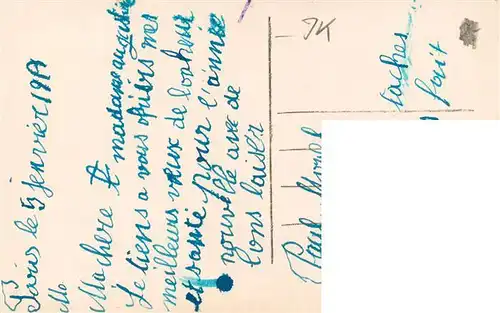 Paris le 5 jenvier 19
Ma
Machere t madame augustine
Je tiens a vous ofrirs mes
meilleurs vœux de bonheur
et santé pour l'année
nouvelle avec de
bons baiser
Paul
taches
fait
JK